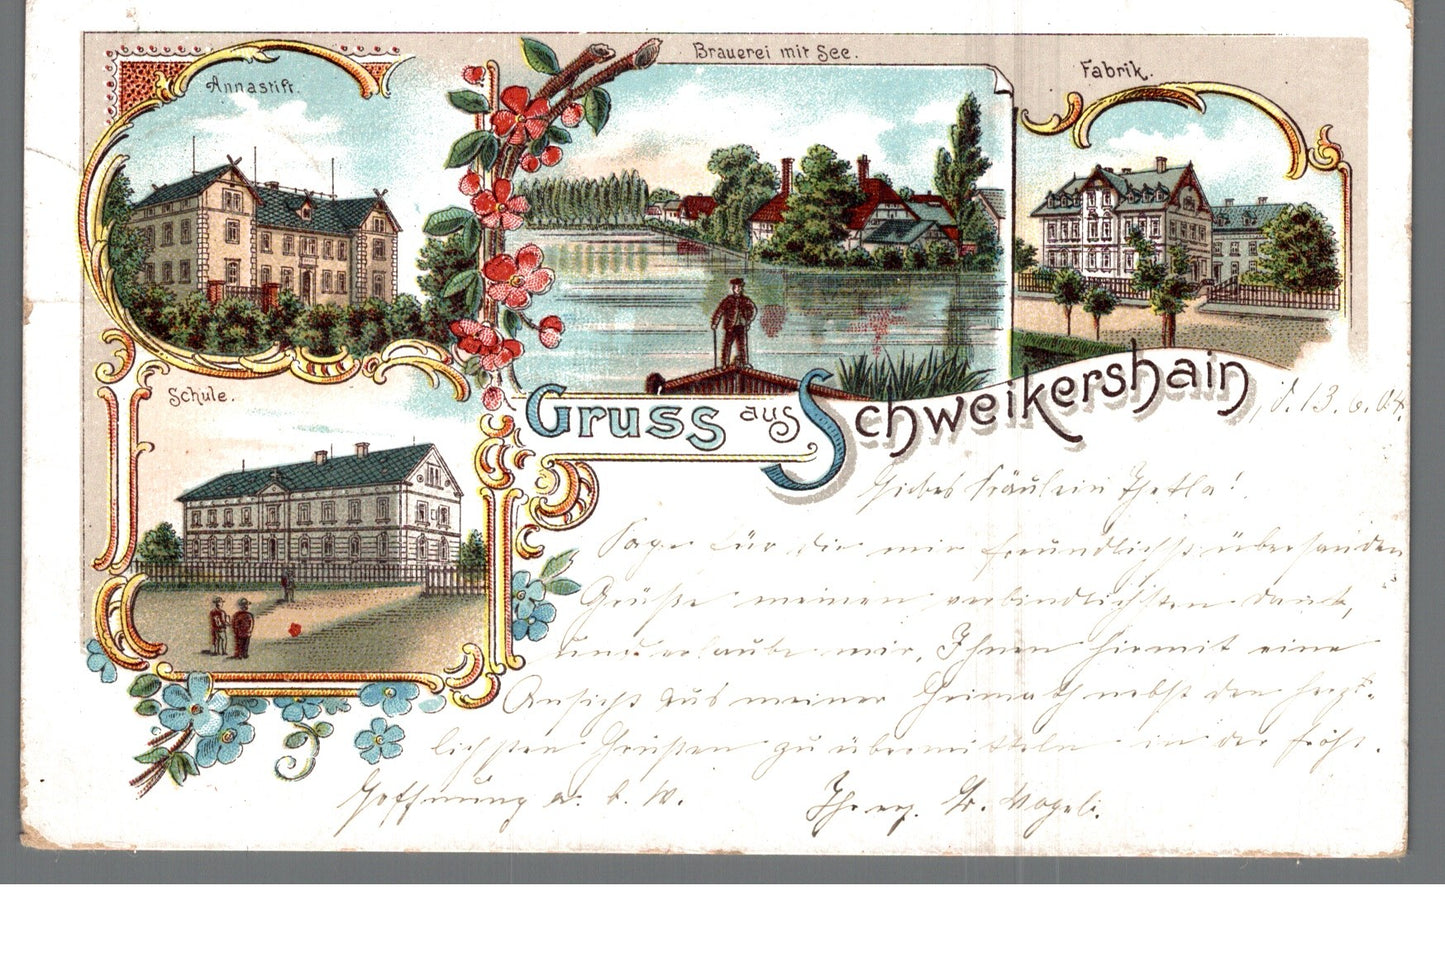 Annastift.
Brauerei mit See.
Fabrik.
Schule.
Gruss aus Schweikershain
, d. 13. 6. 04.
Liebes Fräulein Thekla!
Sage für die mir freundlichst übersanden
Grüße meinen verbindlichsten Dank,
und erlaube mir, Ihnen hiermit eine
Ansicht aus meiner Heimath nebst den herz-
lichsten Grüßen zu übermitteln in der fröhl.
Hoffnung a. b. W.
Ihr erg.